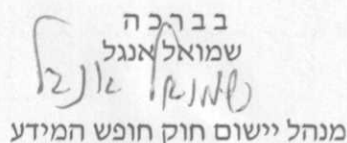 ב ב ר כ ה
שמואל אנגל
שמואל אנגל
מנהל יישום חוק חופש המידע